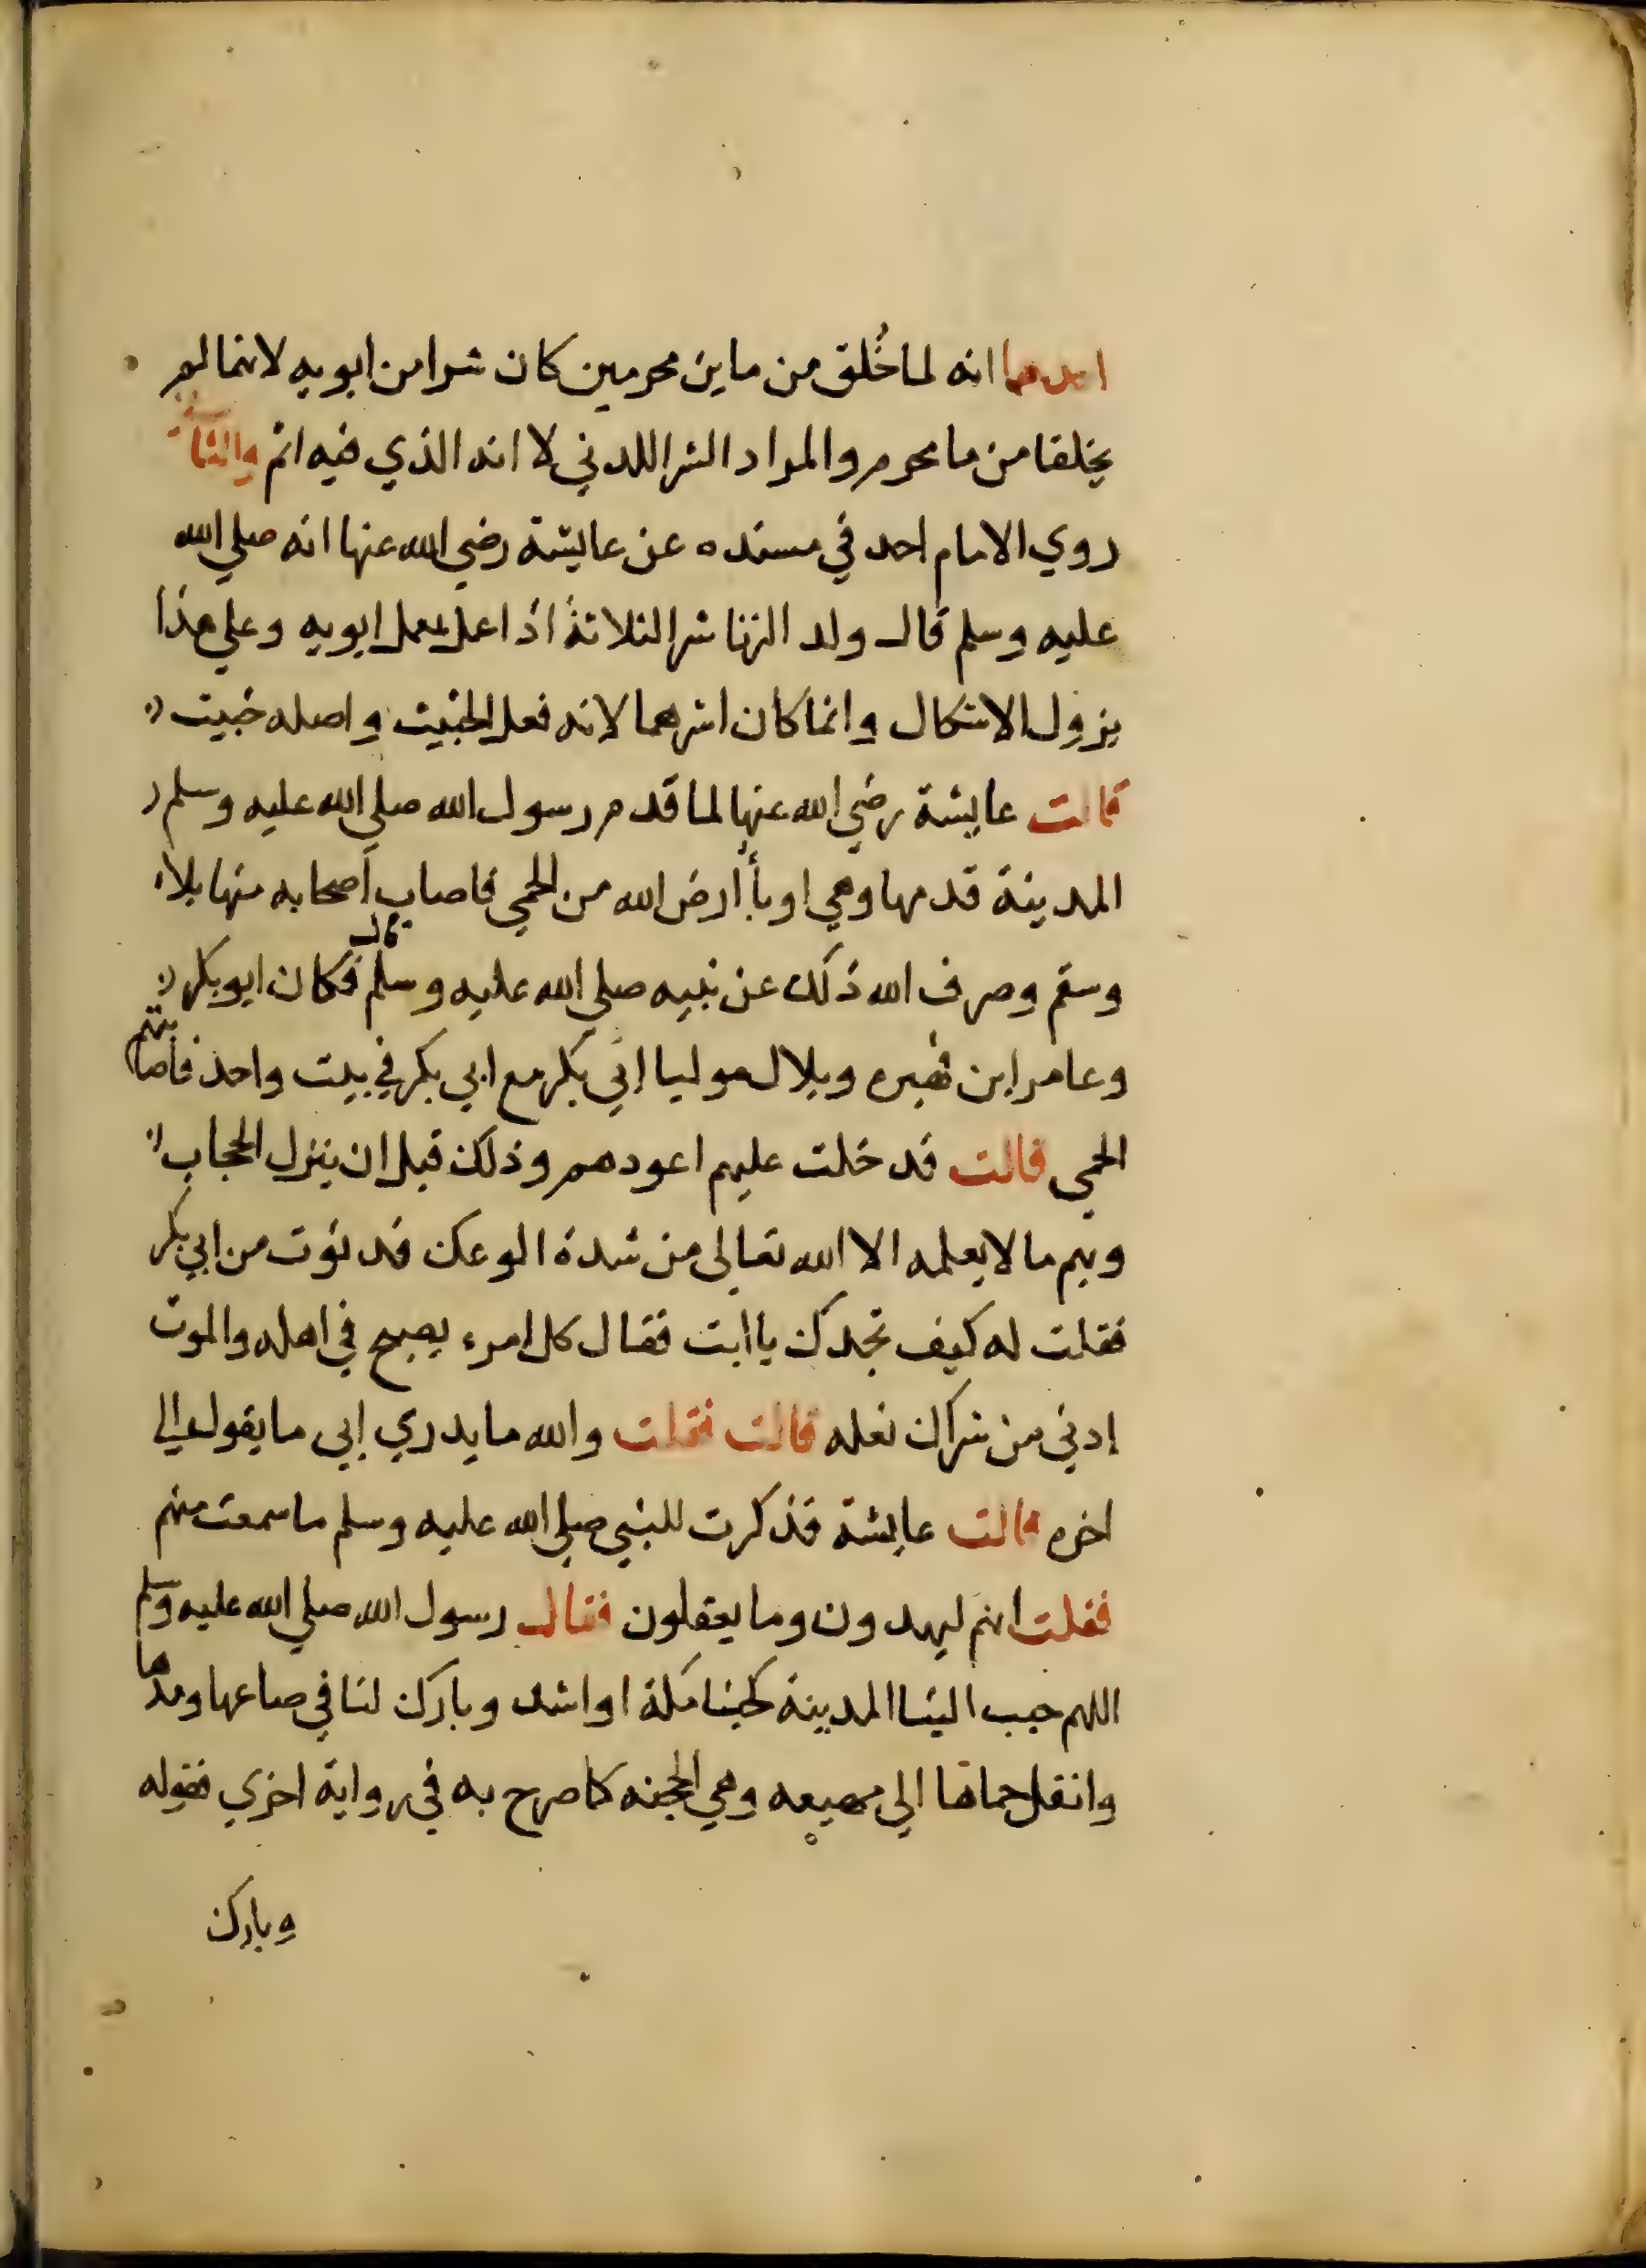 احدهما انه لما خُلق من ماين محرمين كان شرا من ابويه لانهما لم
يخلقا من ما محرم والمراد الشر اللدني لا انه الذي فيه اثم والثانية
روي الامام احد في مسنده عن عايشة رضي الله عنها انه صلي الله
عليه وسلم قال ولد الزنا شر الثلاثة اذا عمل بعمل ابويه وعلي هذا
يزول الاشكال وانما كان اشرهما لانه فعل الخبيث واصله خبيث
قالت عايشة رضي الله عنها لما قدم رسول الله صلي الله عليه وسلم
المدينة قدمها وهي اوبأ أرض الله من الحمي فاصاب أصحابه منها بلاء
وسقم وصرف الله ذلك عن نبيه صلي الله عليه وسلم قال فكان ابو بكر
وعامر ابن فهيره وبلال موليا ابي بكر مع ابي بكر في بيت واحد فأصابتهم
الحمي قالت فدخلت عليهم اعودهم وذلك قبل ان ينزل الحجاب
وبهم ما لا يعلمه الا الله تعالى من شدة الوعك فدنوت من ابي بكر
فقلت له كيف تجدك يا ابت فقال كل امرء يصبح في اهله والموت
ادني من شراك نعله قالت فقلت والله ما يدري ابي ما يقول الي
اخره قالت عايشة فذكرت للنبي صلي الله عليه وسلم ما سمعت منهم
فقلت انهم ليهدون وما يعقلون فقال رسول الله صلي الله عليه وسلم
اللهم حبب الينا المدينة كحبنا مكة او اشد وبارك لنا في صاعها ومدها
وانقل حماها الي مهيعه وهي الجحفه كما صرح به في رواية اخري فقوله
وبارك